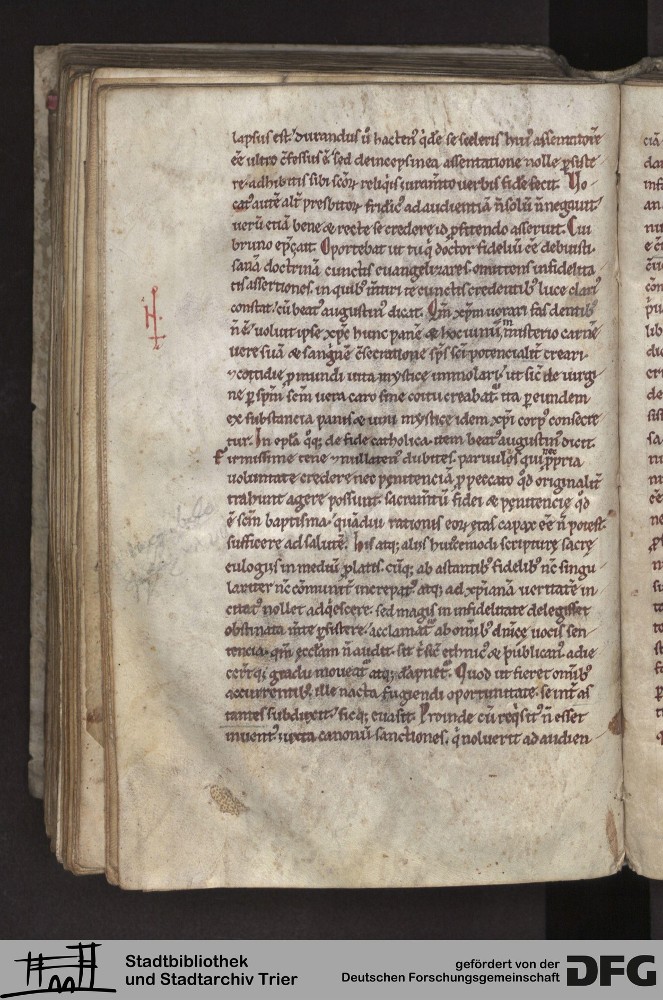 lapsus est. durandus ů hacten⁹ qᵈē se sceleris hui⁹ assentatorē
eē ultro ꝯfessus ē. sed deinceps in ea assentatione nolle ꝑsiste
re. adhibitis sibi scōꝝ reliqis iuramto uerbis fidē fecit. Vo
cat⁹ autē altˀ presbitoꝝ fridic⁹ ad audientiā n̄ solū n̄ negauit
uerū etiā bene & recte se credere id ꝓfitendo asseruit. Cui
bruno ep̄c ait. Oportebat ut tu qi doctor fideliū eē debuisti
sanā doctrinā cunctis euangelizares. omittens infidelita
tis assertiones. in quibˀ m̄tiri te cunctis credentibˀ luce clariˀ
constat. cū beatˀ augustinˀ dicat. Qm̄ xp̄m uorari fas dentibˀ
n̄ ē. uoluit ipse xp̄c hunc panē & hoc uinū in misterio carnē
uere suā & sanguinē ꝯsecratione sp̄s sc̄i potencialitˀ creari.
& cottidie ꝓ mundi uita mystice immolari. ut sic̄ de uirgi
ne ꝑ sp̄m sc̄m uera caro sine coitu creabatˀ. ita ꝑ eundem
ex substancia panis & uini mystice idem xp̄i corpˀ consecre
tur. In epl̄a qoq; de fide catholica. item beatˀ augustinˀ dicit.
Firmissime tene & nullatenˀ dubites. paruulos qui nec ꝓpria
uoluntate credere nec penitenciā ꝓ peccato qd̄ originalitˀ
trahunt agere possunt. sacramtū fidei & penitencie qd̄
ē sc̄m baptisma. quādiu rationis eoꝝ etas capax eē n̄ potest
sufficere ad salutē. His atq; aliis huicemodi scripturę sacrę
eulogiis in mediū ꝓlatis. cūq; ab astantibˀ fidelibˀ nc̄ singu
lariter nc̄ cōmunitˀ increpatˀ. atq; ad xp̄ianā ueritatē in
citatˀ nollet adqiescere. sed magis in infidelitate delegisset
obstinata m̄te ꝑsistere. acclamatˀ ab omibˀ dn̄ice uocis sen
tencia. qm̄ ecclām n̄ audit. sit tˀ sic̄ ethnicˀ & publicanˀ. adie
cerūtq; gradu moueatˀ atq; dāpnetˀ. Quod ut fieret omibˀ
accurrentibˀ. ille nacta fugiendi oportunitate. se intˀ as
tantes subduxit. sicq; euasit. Proinde cū reqisitˀ n̄ esset
inuentˀ. iuxta canonū sanctiones. qi noluerit ad audien
Stadtbibliothek
und Stadtarchiv Trier
gefördert von der
Deutschen Forschungsgemeinschaft
DFG